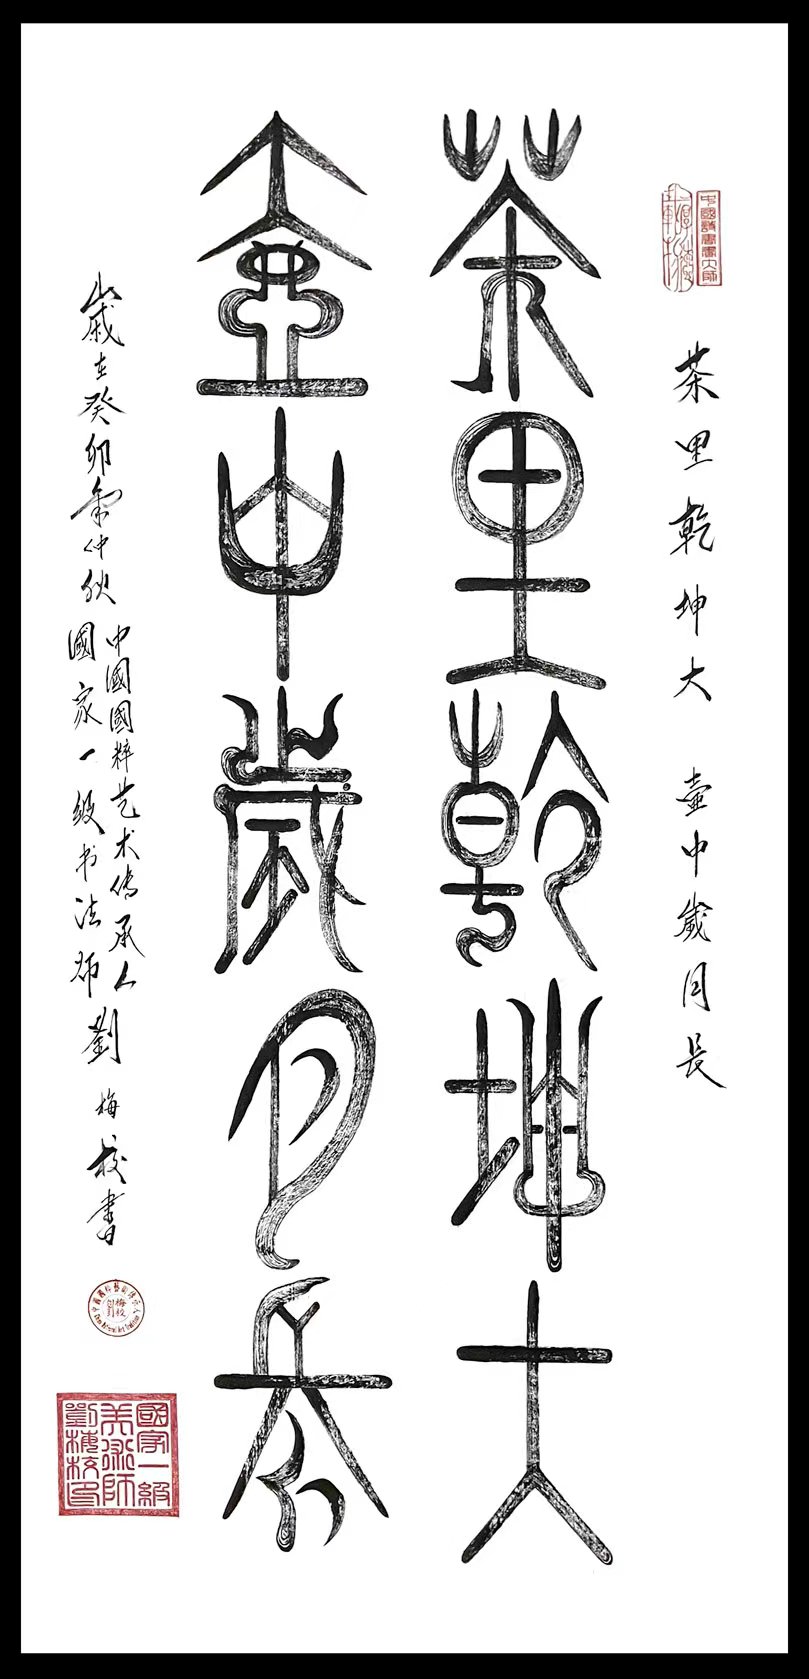 中國詩書畫大師
茶里乾坤大 壺中歲月長
茶里乾坤大
壺中歲月長
歲在癸卯年仲秋
中國國粹艺术傳承人
國家一級书法師劉梅校書
國家一級
美術師
劉梅校印